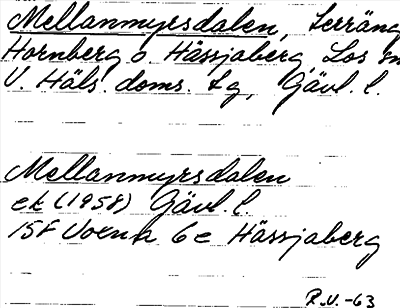 Mellanmyrsdalen, terräng
Hornberg o Hässjaberg, Los sn
V. Häls. doms. tg, Gävl. l.
Mellanmyrsdalen
ek (1958) Gävl. l.
15F Voxna 6e Hässjaberg
R.U. -63